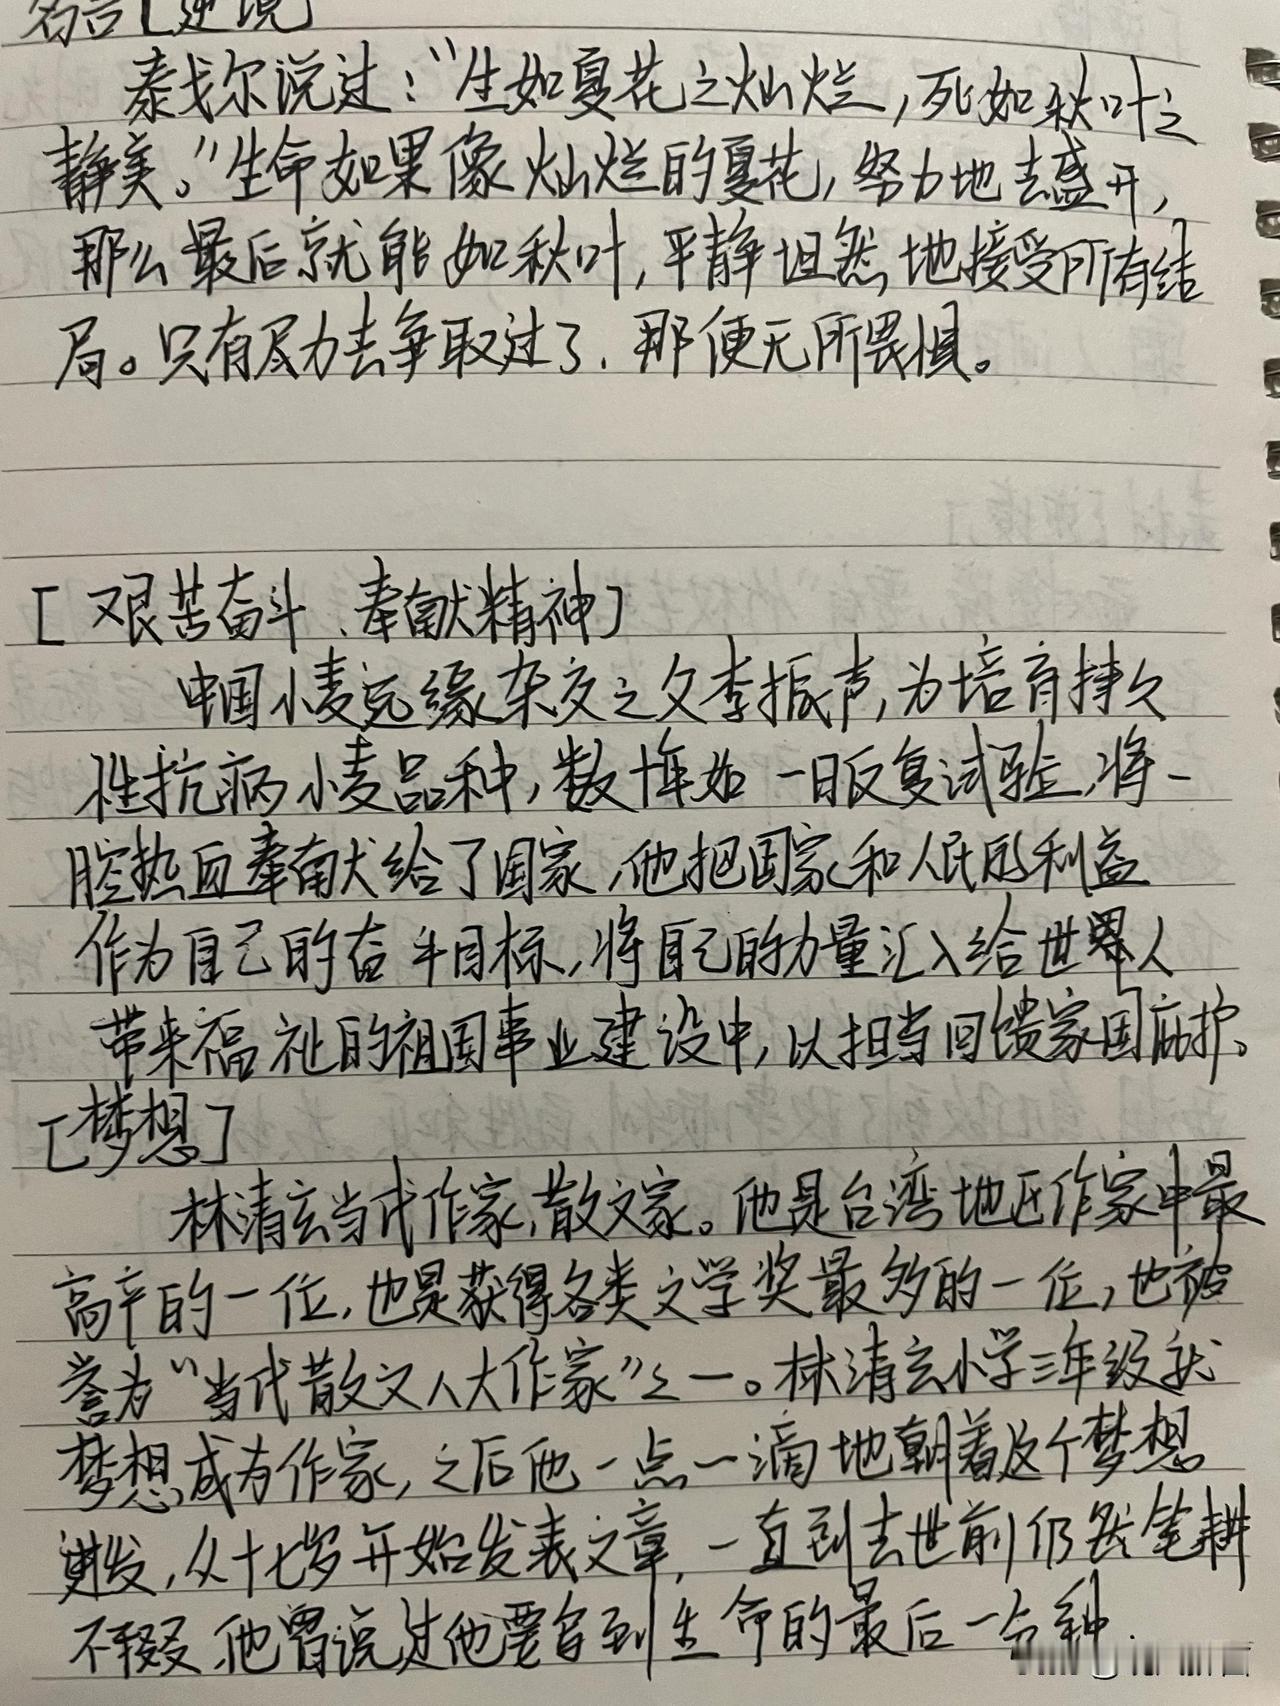 名言[逆境]
泰戈尔说过：“生如夏花之灿烂，死如秋叶之
静美。”生命如果像灿烂的夏花，努力地去盛开，
那么最后就能如秋叶，平静坦然地接受所有结
局。只有尽力去争取过了，那便无所畏惧。
[艰苦奋斗、奉献精神]
中国小麦远缘杂交之父李振声，为培育持久
性抗病小麦品种，数十年如一日反复试验，将一
腔热血奉献给了国家，他把国家和人民的利益
作为自己的奋斗目标，将自己的力量汇入给世界人
带来福祉的祖国事业建设中，以担当回馈家国庇护。
[梦想]
林清玄当代作家，散文家。他是台湾地区作家中最
高产的一位，也是获得各类文学奖最多的一位，也被
誉为“当代散文八大作家”之一。林清玄小学三年级就
梦想成为作家，之后他一点一滴地朝着这个梦想
进发，从十七岁开始发表文章，一直到去世前仍然笔耕
不辍，他曾说过他要写到生命的最后一分钟.